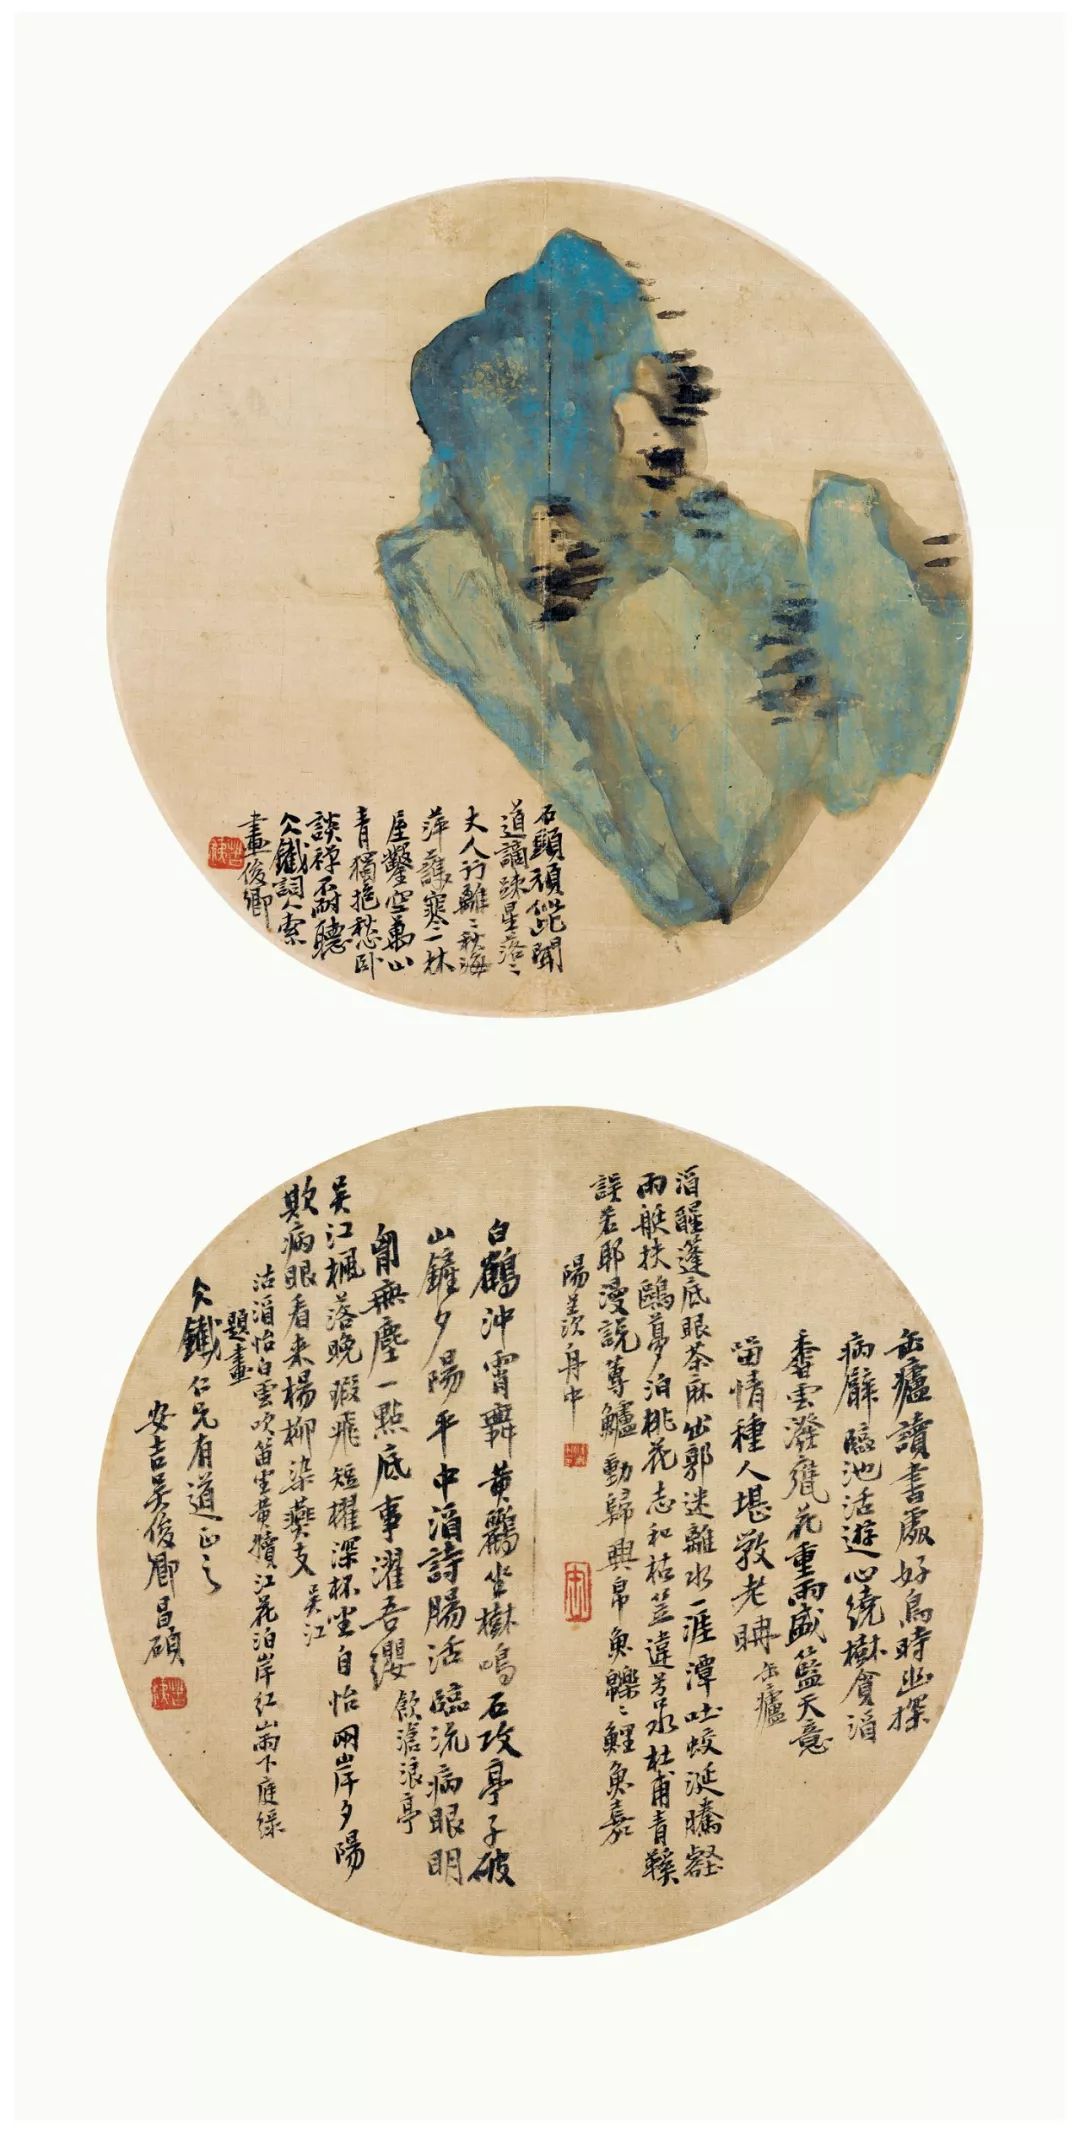 石頭頑能聞
道謫疎星落ミ
丈人行離ミ秋海
萍護寒一林
屋鑿空萬山
青獨抱愁卧
談禪不耐聽
仌鐵詞人索
畫俊卿
缶廬讀書處好鳥時幽探
病癖臨池活遊心繞樹貪酒
香雲潑甕花重雨盛籃天意
留情種人堪敩老聃 缶廬
酒醒蓬底眼茶麻出郭迷離水一涯潭吐蛟涎騰壑
雨艇扶鷗夢泊桃花志和枯笠違苕水杜甫青鞵
誤若耶漫說蓴鱸動歸興帛魚轢ミ鯉魚嘉
陽羨舟中
白鶴沖霄舞黃鸝坐樹鳴石攻亭子破
山鏟夕陽平中酒詩腸活臨流病眼明
胷無塵一點底事濯吾纓 飲滄浪亭
吳江楓落晚瑕飛短櫂深杯坐自怡兩岸夕陽
欺病眼看來楊柳染燕支 吳江
沽酒怡白雲吹笛坐黃犢江花泊岸紅雨下庭綠
題畫
仌鐵仁兄有道正之
安吉吳俊卿昌碩